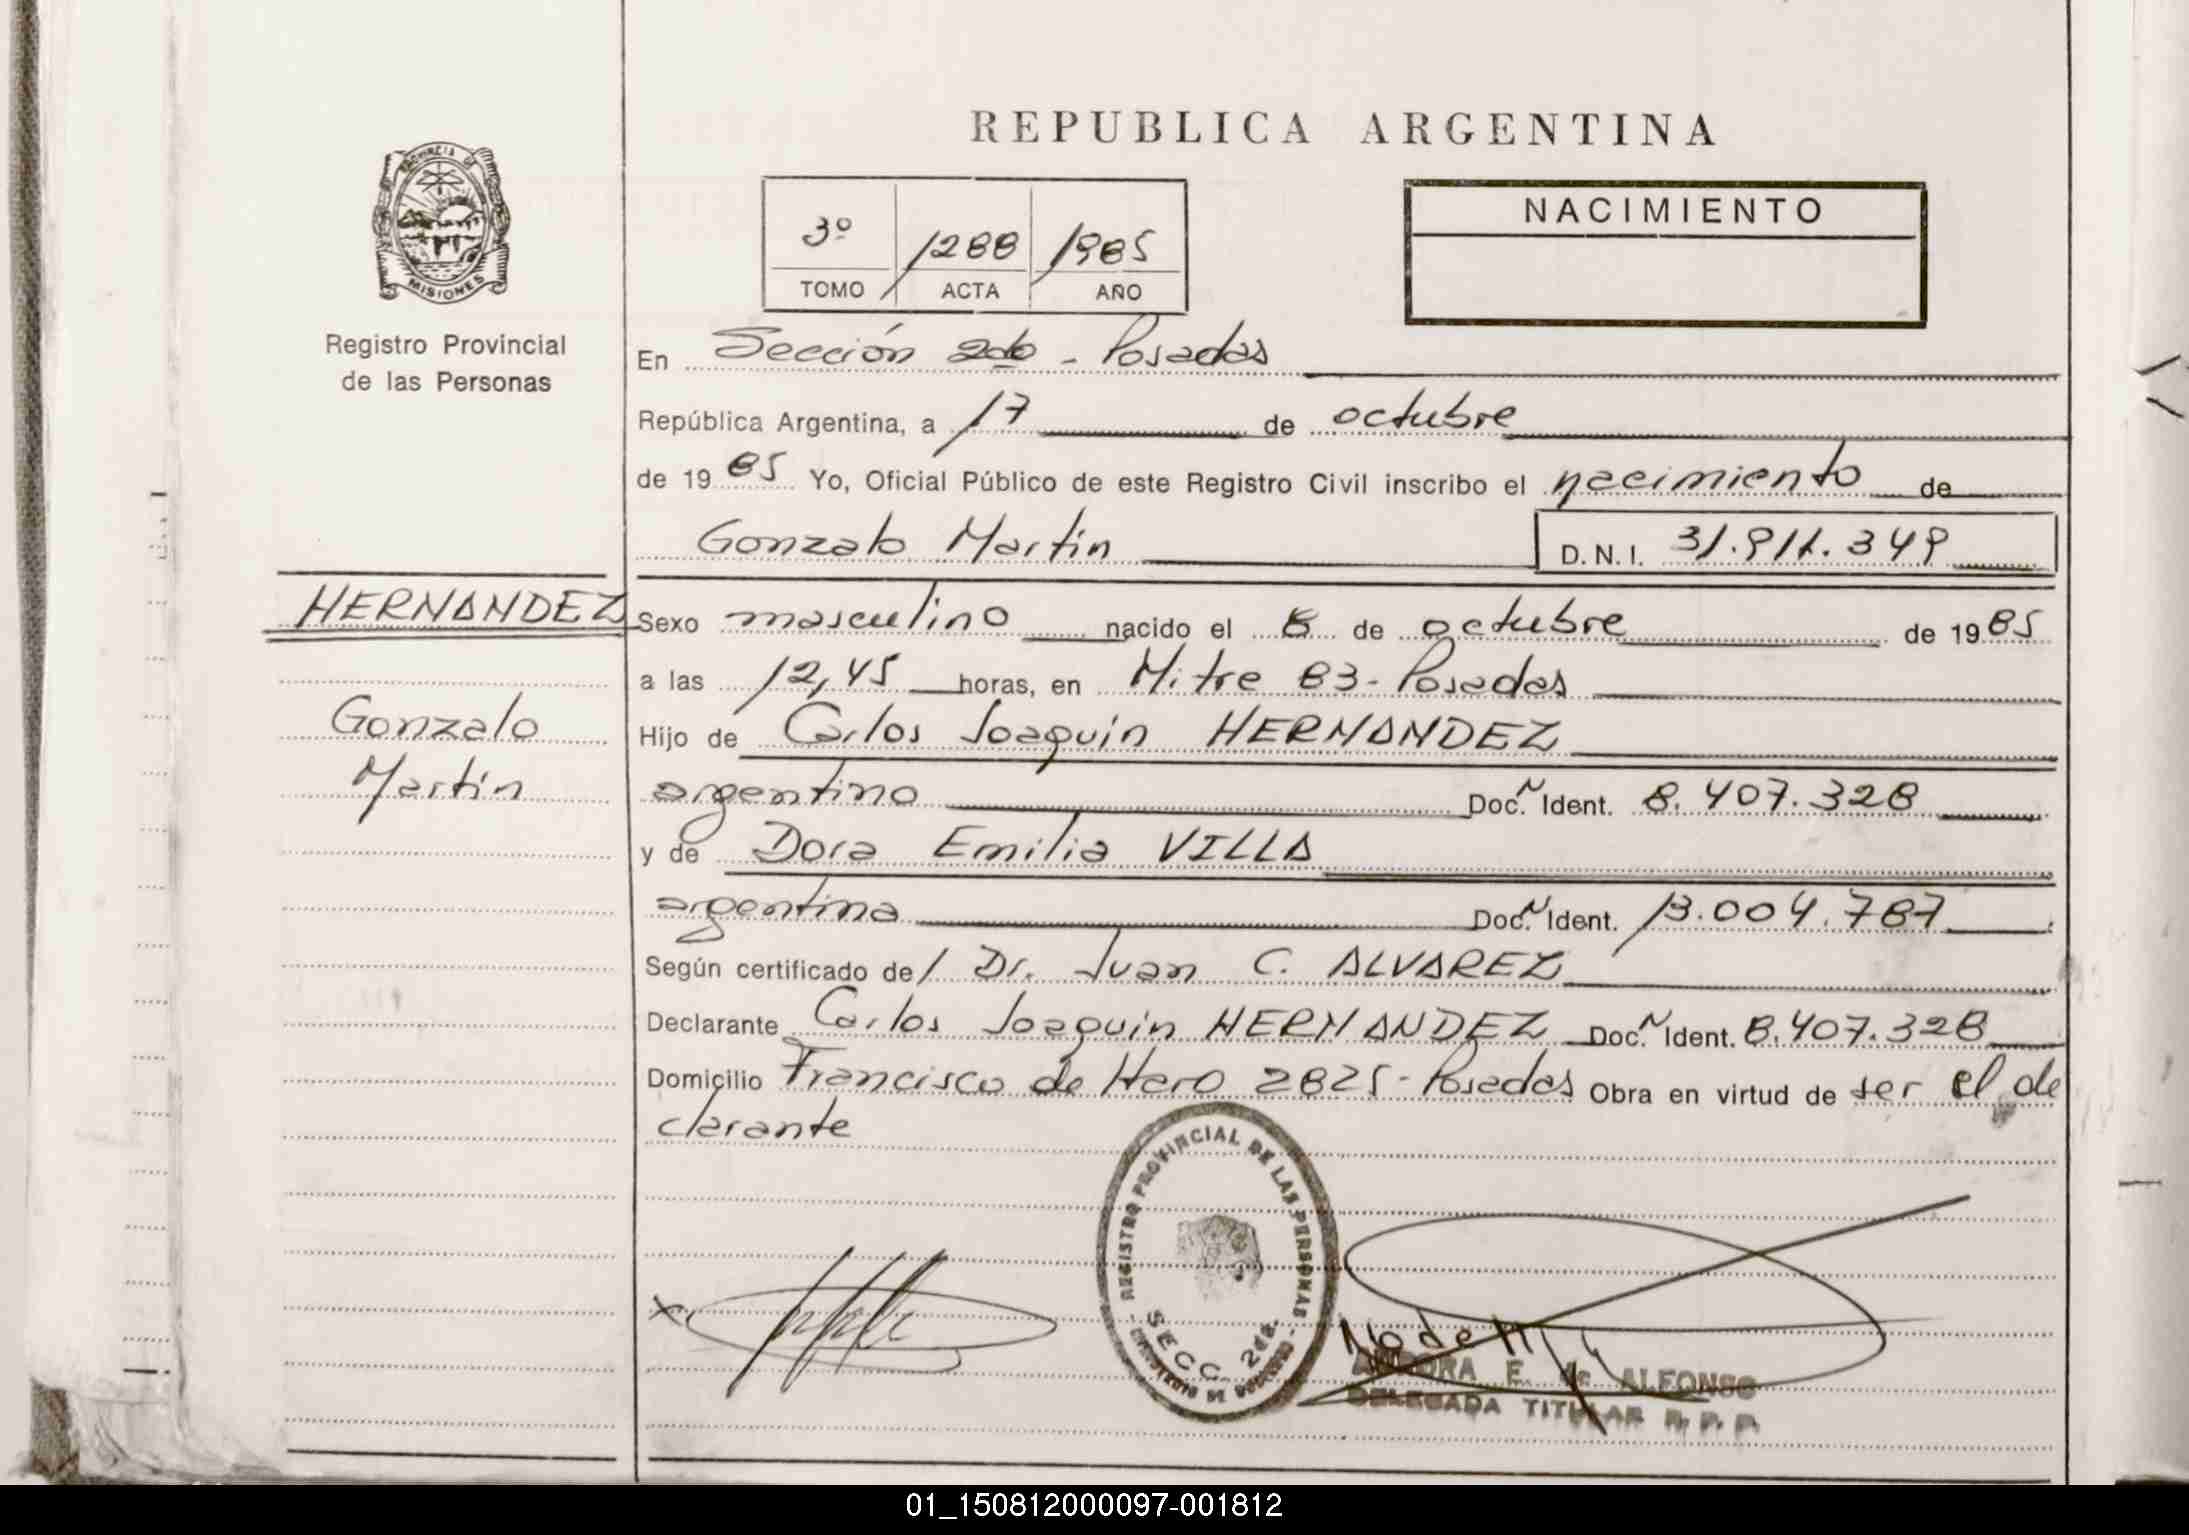 REPUBLICA ARGENTINA
PROVINCIA DE
MISIONES
Registro Provincial
de las Personas
3º 1288 1985
TOMO ACTA AÑO
NACIMIENTO
En Sección 2da - Posadas
República Argentina, a 17 de octubre
de 1985 Yo, Oficial Público de este Registro Civil inscribo el nacimiento de
Gonzalo Martín
D.N.I. 31.911.349
HERNANDEZ
Gonzalo
Martín
Sexo masculino nacido el 8 de octubre de 1985
a las 12,45 horas, en Mitre 83 - Posadas
Hijo de Carlos Joaquín HERNANDEZ
argentino Doc. Ident. 8.407.328
y de Dora Emilia VILLA
argentina Doc. Ident. 13.004.787
Según certificado de/ Dr. Juan C. ALVAREZ
Declarante Carlos Joaquín HERNANDEZ Doc. Ident. 8.407.328
Domicilio Francisco de Haro 2825 - Posadas Obra en virtud de ser el de
clarante
REGISTRO PROVINCIAL DE LAS PERSONAS
SECC. 2da.
E. de ALFONSO
DELEGADA TITULAR R. P. P.
01_150812000097-001812